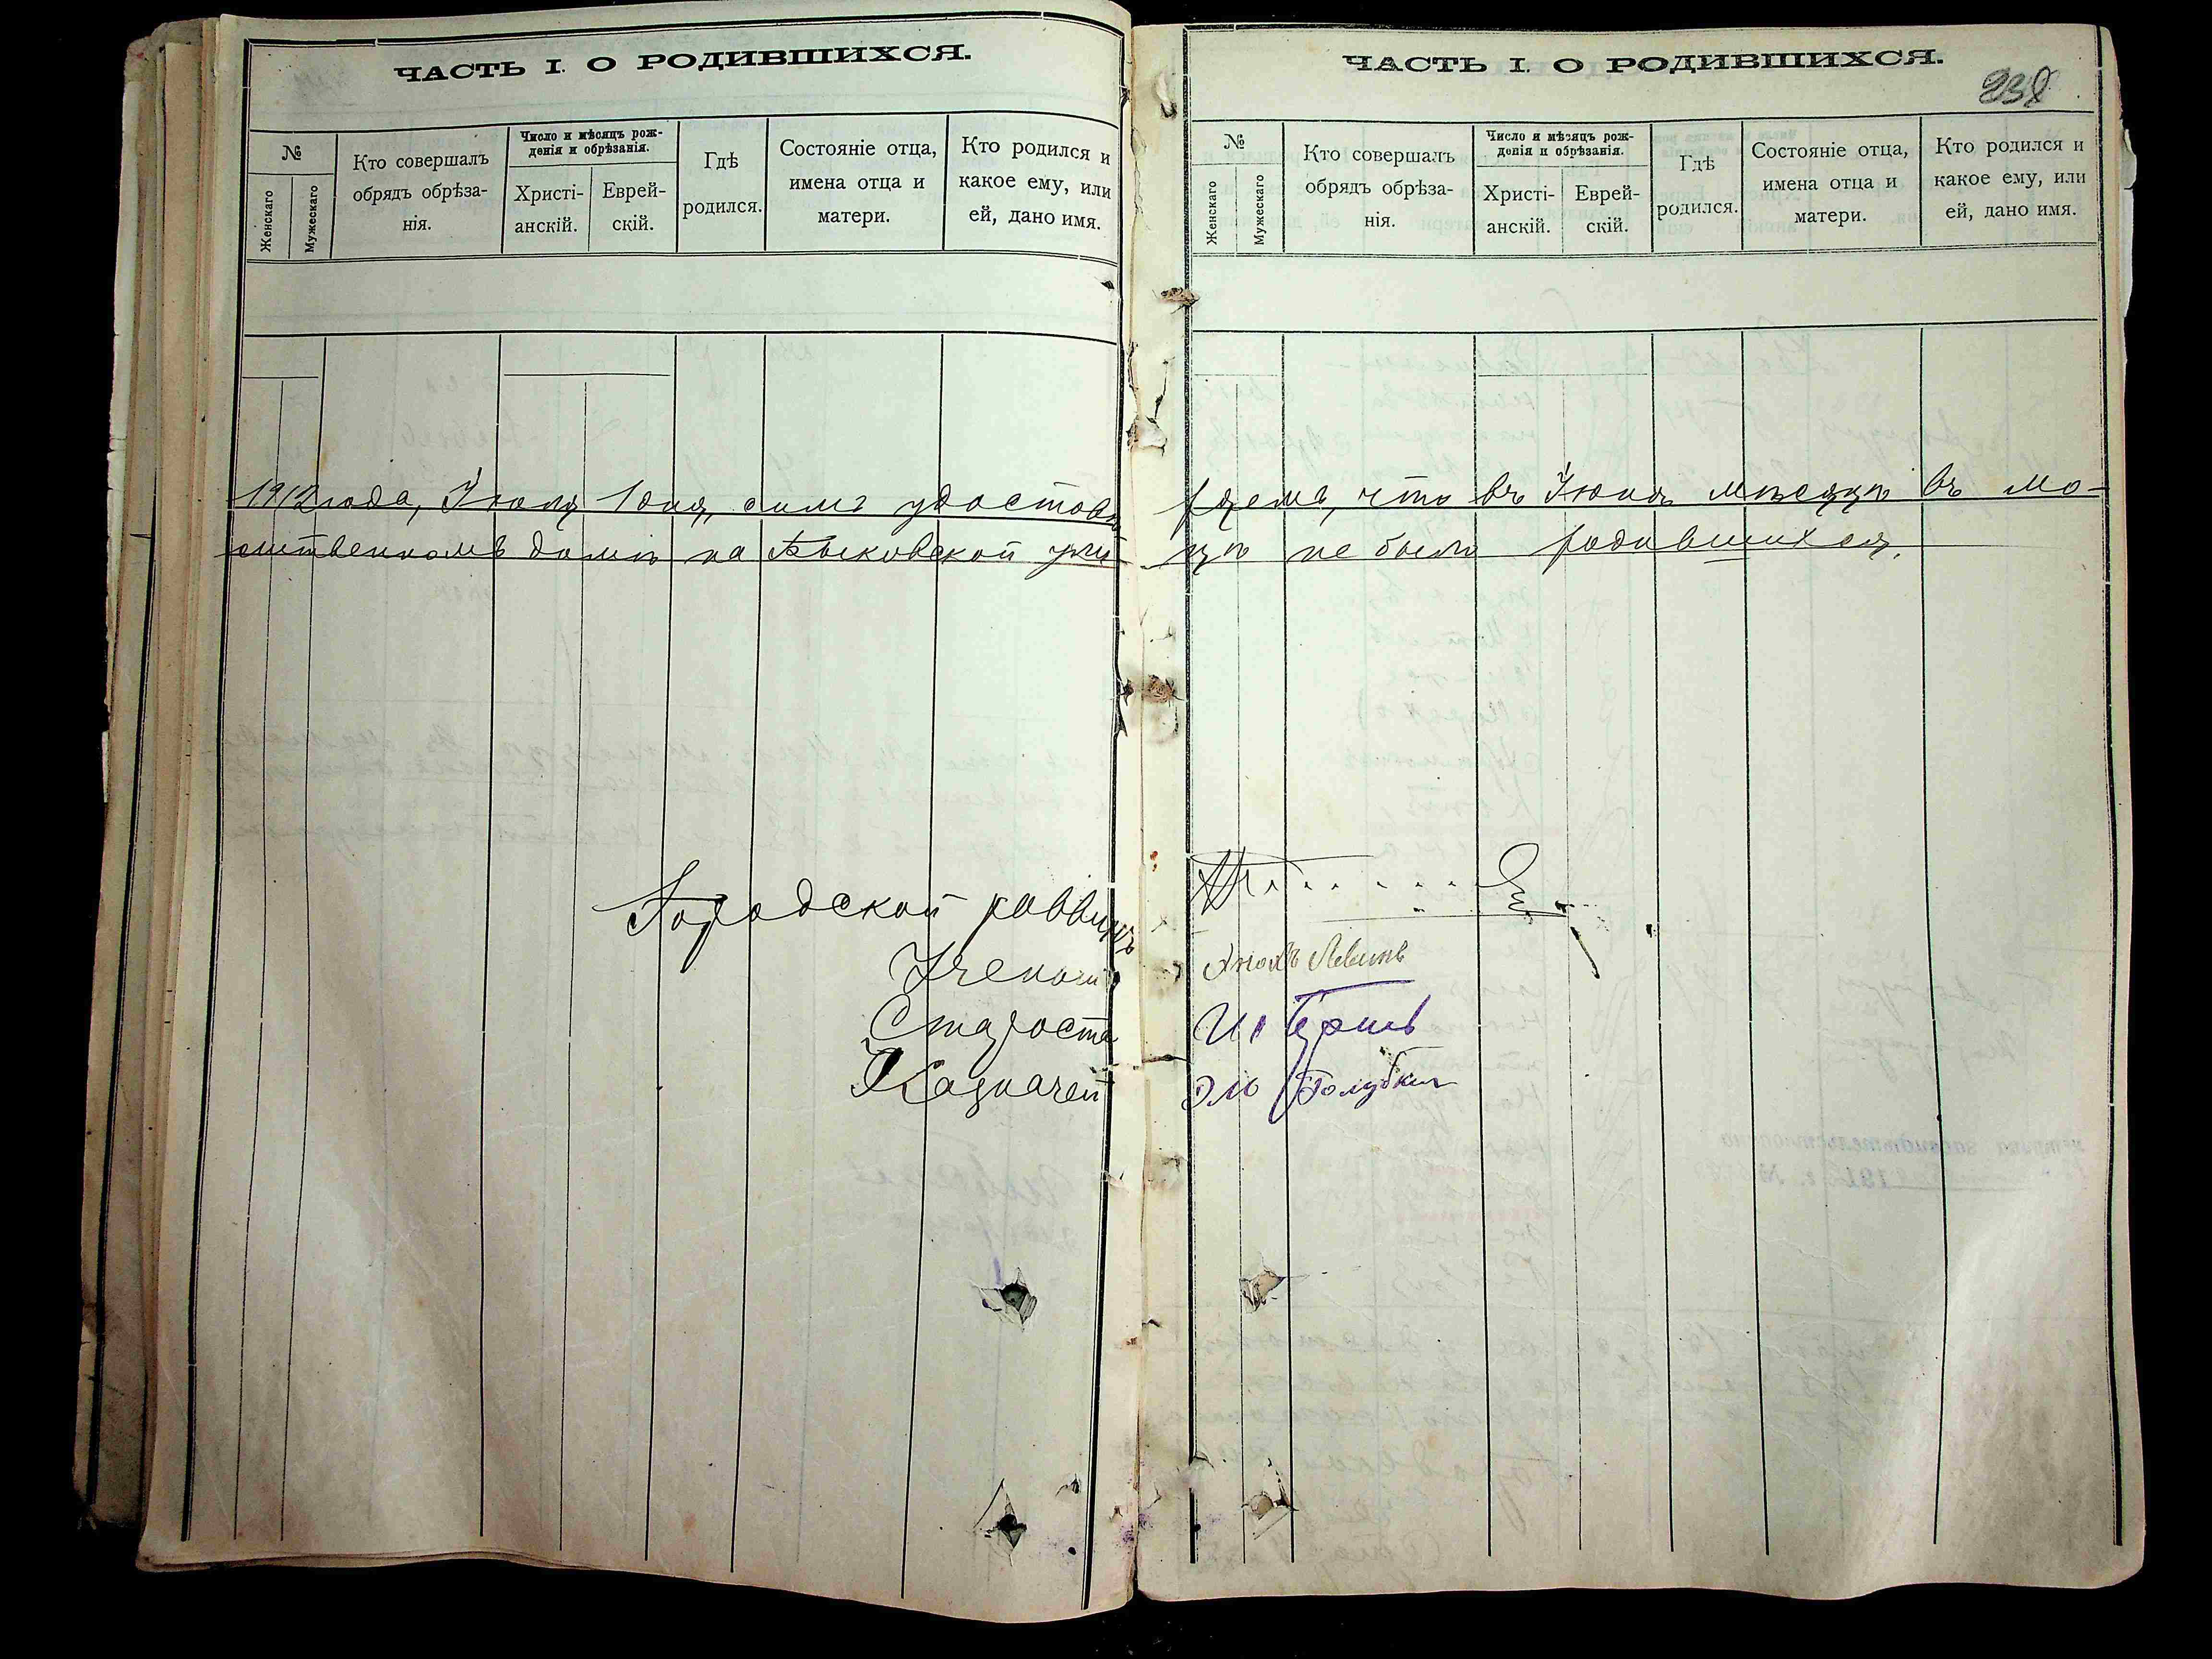 ЧАСТЬ I. О РОДИВШИХСЯ.
№
Женскаго
Мужескаго
Кто совершалъ
обрядъ обрѣза-
нія.
Число и мѣсяцъ рож-
денія и обрѣзанія.
Христі-
анскій.
Еврей-
скій.
Гдѣ
родился.
Состояніе отца,
имена отца и
матери.
Кто родился и
какое ему, или
ей, дано имя.
ЧАСТЬ I. О РОДИВШИХСЯ.
№
Женскаго
Мужескаго
Кто совершалъ
обрядъ обрѣза-
нія.
Число и мѣсяцъ рож-
денія и обрѣзанія.
Христі-
анскій.
Еврей-
скій.
Гдѣ
родился.
Состояніе отца,
имена отца и
матери.
Кто родился и
какое ему, или
ей, дано имя.
1912 года, Июля 1 дня, симъ удостовѣряемъ, что въ Июнѣ мѣсяцѣ въ мо-
литвенномъ домѣ на Быковской улицѣ не было родившихся.
Городской раввинъ
Ученый Левинъ
Староста
Казначей Голубкин